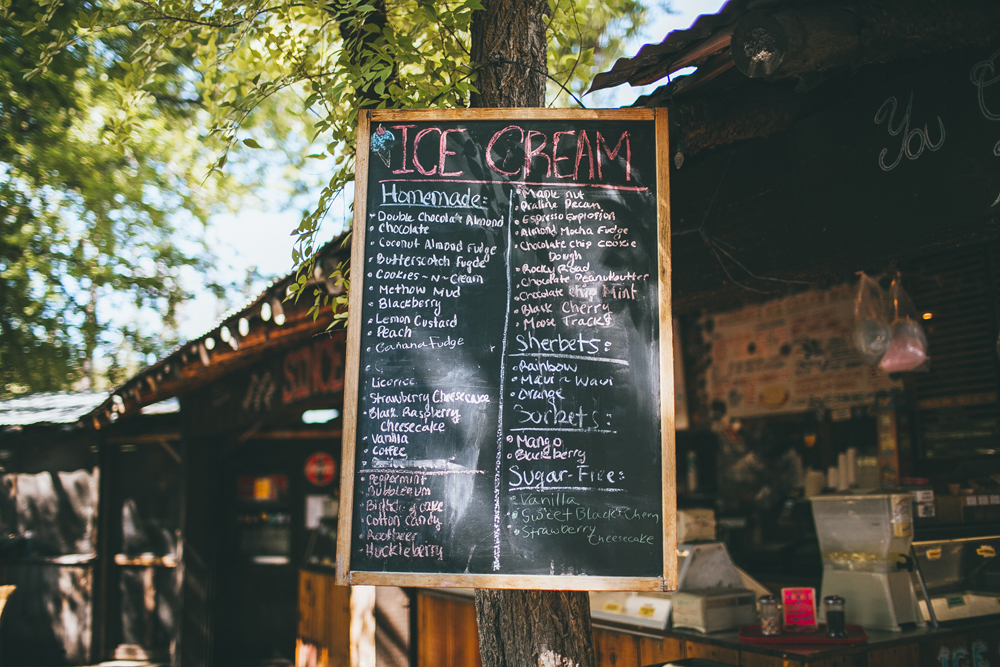 ICE CREAM
Homemade:
Double Chocolate Almond
chocolate
Coconut Almond Fudge
Butterscotch Fugde
Cookies ~ N ~ Cream
Methow Mud
Blackberry
Lemon Custard
Peach
Banana Fudge
Licorice
Strawberry Cheesecake
Black Raspberry
Cheesecake
Vanilla
Coffee
Peppermint
Bubblegum
Birthday Cake
Cotton Candy
Rootbeer
Huckleberry
Maple nut
Praline Pecan
Espresso Explosion
Almond Mocha Fudge
Chocolate chip cookie
Dough
Rocky Road
Chocolate Peanutbutter
Chocolate chip Mint
Black Cherry
Moose Tracks
Sherbets:
Rainbow
Maui ~ Waui
Orange
Sorbets:
Mango
Blackberry
Sugar-Free:
Vanilla
Sweet Black Cherry
Strawberry
Cheesecake
You